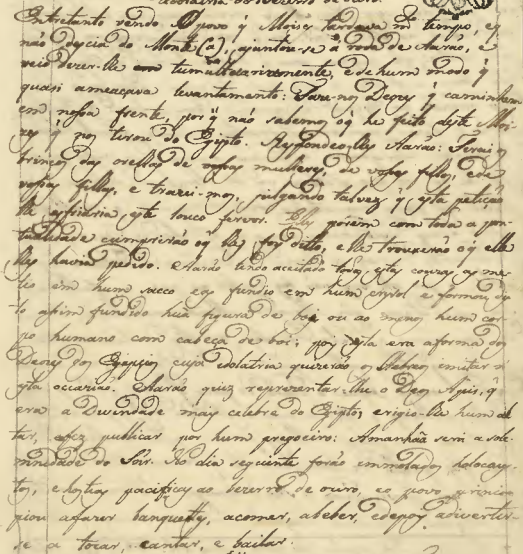 Adoração do Bezerro de ouro.
Entretanto vendo o povo q̃ Moises tardava m.to tempo, e q̃
não dycia do Monte (a), ajuntou-se á roda de Aarão, e
veio dizer-lhe em tumultuariamente, e de hum modo q̃
quasi ameaçava levantamento: Faze-nos Deozes q̃ caminhem
em nossa frente, porq̃ não sabemos oq̃ he feito deste Moi-
zes q̃ nos tirou do Egipto. Respondeo-lhes Aarão: Tirai os
brincos das orelhas de vossas mulheres, de vossos filhos, e de
vossas filhas, e trazei-mos, julgando talvez q̃ esta petição
lhe esfriaria este louco fervor. Elles porém com toda a pon-
tualidade cumprirão oq̃ lhes foi ditto, e lhe trouxerão oq̃ elle
lhes havia pedido. Aarão tendo aceitado todas estas couzas, as me-
teo em hum sacco e as fundio em hum crysol e formou de
to assim fundido hũa figura de boy ou ao menos hum cor-
po humano com cabeça de boi; poys esta era a forma dos
Deozes dos Egypcios cuja idolatria quizerão os Hebreos imitar n
esta occazião. Aarão quiz reprezentar-lhe o Deos Apis, q̃
era a Divindade mais celebre do Egipto, erigio-lhe hum al-
tar, e fez publicar por hum pregoeiro: Amanhãa será a sole-
mnidade do Sõr. No dia seguinte forão immolados holocaus-
tos, e hostias pacificas ao bezerro de ouro, e o povo princi-
piou a fazer banquetes, a comer, a beber, e depois a divertir-
se a tocar, cantar, e bailar.